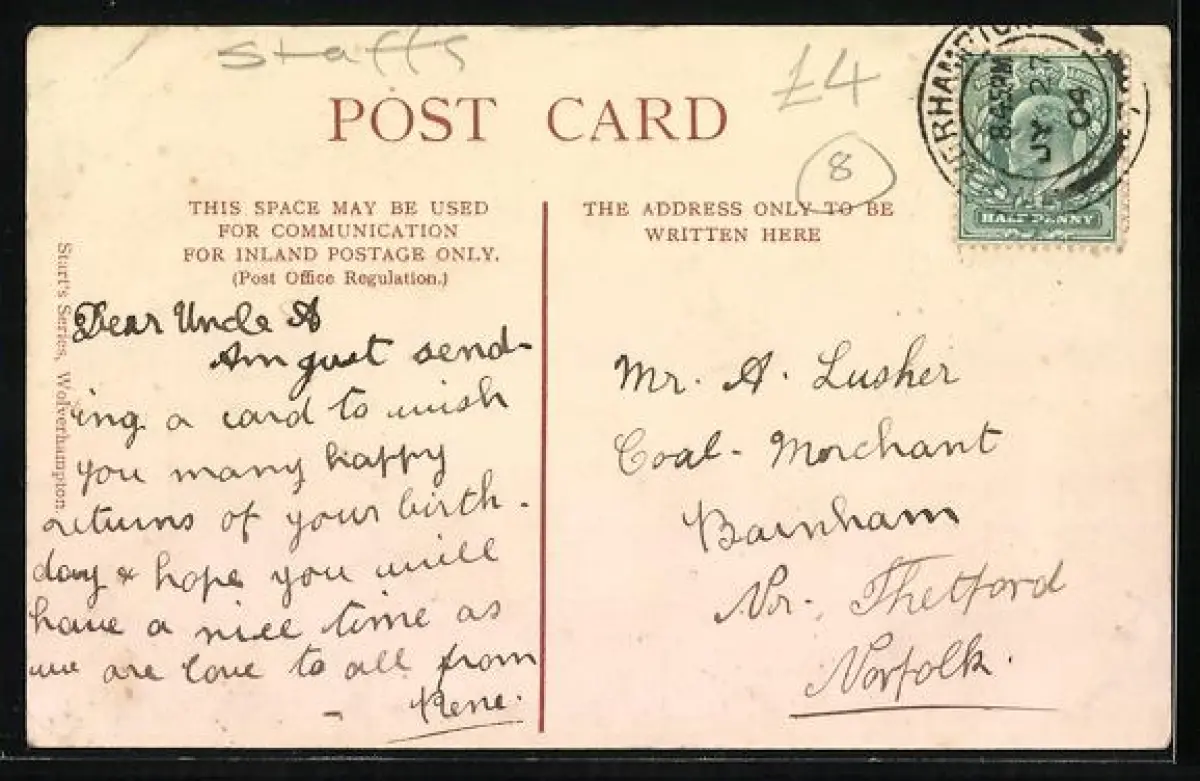 Staffs
£4
POST CARD
8
THIS SPACE MAY BE USED
FOR COMMUNICATION
FOR INLAND POSTAGE ONLY.
(Post Office Regulation.)
THE ADDRESS ONLY TO BE
WRITTEN HERE
ERHAMPTON
8.45PM
JY 27
04
HALF PENNY
Start's Series, Wolverhampton.
Dear Uncle A
Am just send-
ing a card to wish
you many happy
returns of your birth-
day & hope you will
have a nice time as
we are love to all from
Rene.
Mr. A. Lusher
Coal- Merchant
Barnham
Nr. Thetford
Norfolk.